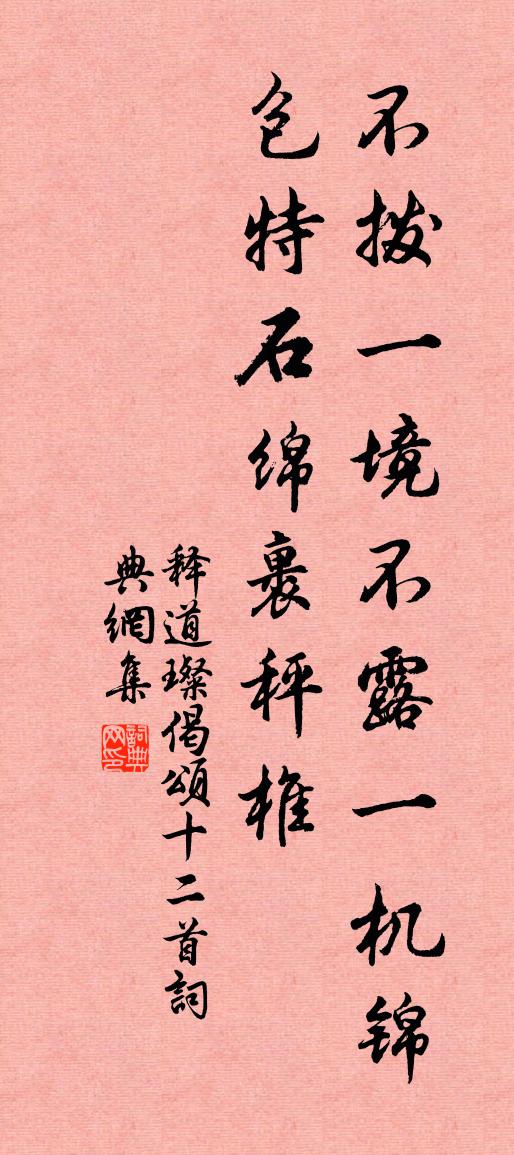 不拨一境不露一机锦
包特石绵裹秤椎
释道璨偈頌十二首詞
典網集
詞典
网印